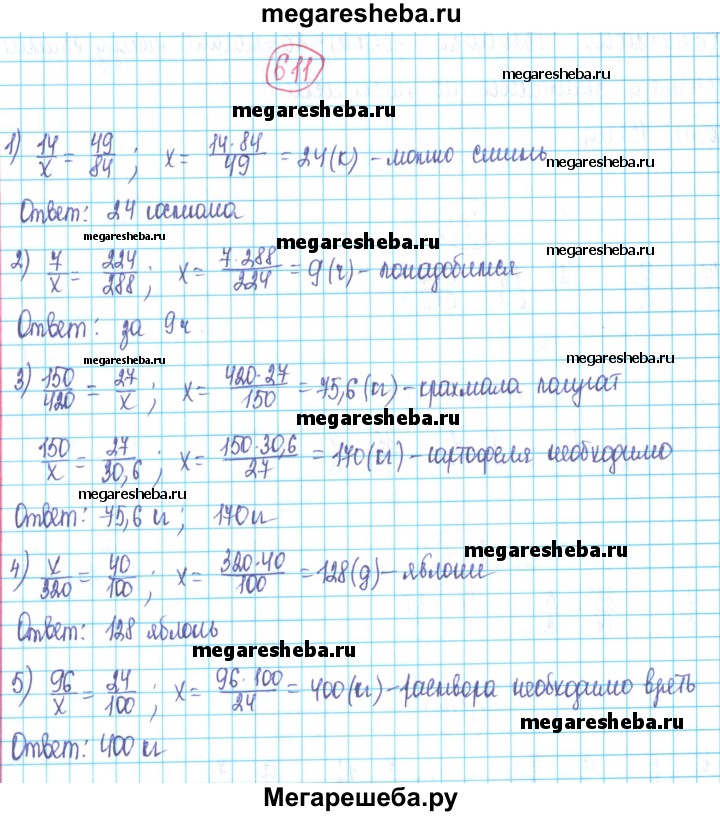 megaresheba.ru
611
megaresheba.ru
megaresheba.ru
1) 14/x = 49/84; x = 14·84/49 = 24(к) - можно сшить
megaresheba.ru
Ответ: 24 костюма
megaresheba.ru
megaresheba.ru
2) 7/x = 224/288; x = 7·288/224 = 9(ч) - понадобится
megaresheba.ru
Ответ: за 9ч
megaresheba.ru
megaresheba.ru
3) 150/420 = 27/x; x = 420·27/150 = 75,6(кг) - крахмала получат
megaresheba.ru
150/x = 27/30,6; x = 150·30,6/27 = 170(кг) - картофеля необходимо
megaresheba.ru
Ответ: 75,6 кг; 170кг
megaresheba.ru
4) x/320 = 40/100; x = 320·40/100 = 128(д) - яблони
Ответ: 128 яблонь
megaresheba.ru
5) 96/x = 24/100; x = 96·100/24 = 400(кг) - раствора необходимо взять
megaresheba.ru
Ответ: 400 кг
Мегарешеба.ру